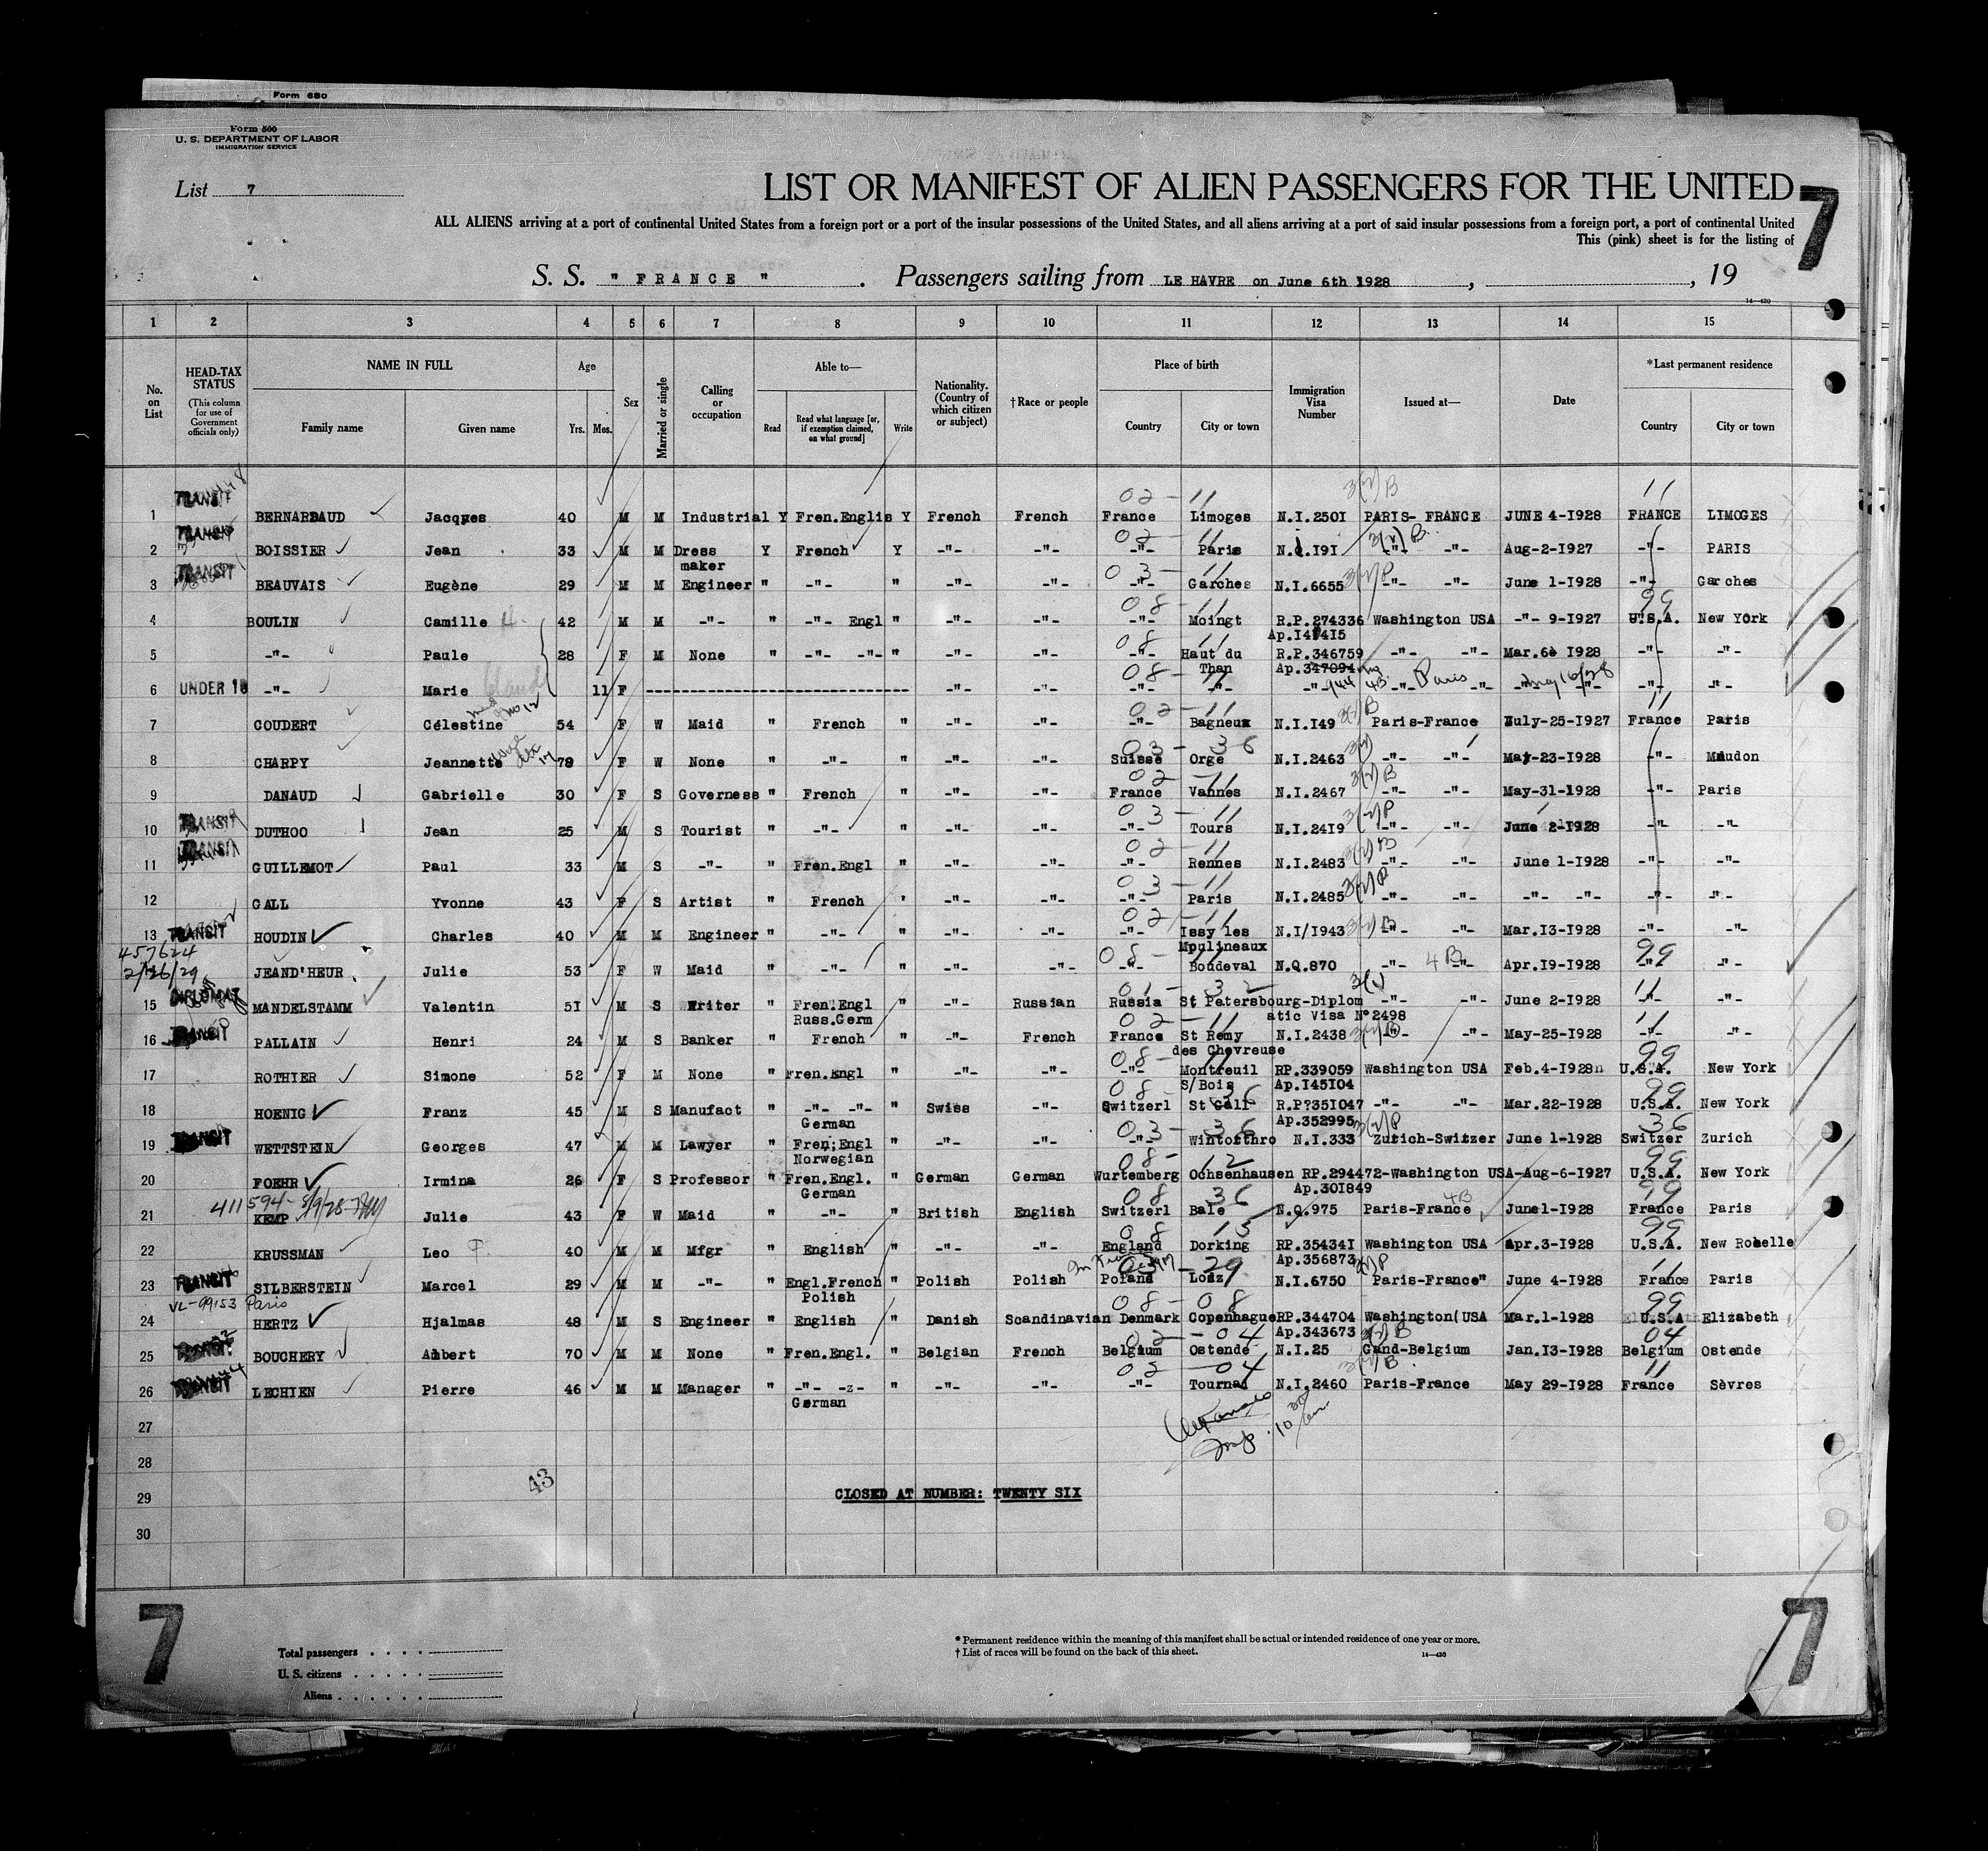 Form 630
Form 500
U. S. DEPARTMENT OF LABOR
IMMIGRATION SERVICE
List 7
LIST OR MANIFEST OF ALIEN PASSENGERS FOR THE UNITED
7
ALL ALIENS arriving at a port of continental United States from a foreign port or a port of the insular possessions of the United States, and all aliens arriving at a port of said insular possessions from a foreign port, a port of continental United
This (pink) sheet is for the listing of
S. S. " FRANCE " . Passengers sailing from LE HAVRE on June 6th 1928 , , 19
14—430
1 2 3 4 5 6 7 8 9 10 11 12 13 14 15
No. on List
HEAD-TAX STATUS (This column for use of Government officials only)
NAME IN FULL Family name Given name
Age Yrs. Mos.
Sex
Married or single
Calling or occupation
Able to— Read Read what language [or, if exemption claimed, on what ground] Write
Nationality. (Country of which citizen or subject)
†Race or people
Place of birth Country City or town
Immigration Visa Number
Issued at—
Date
*Last permanent residence Country City or town
TRANSIT 02 - 11 3(2) B 11
1 BERNARDAUD Jacques 40 M M Industrial Y Fren.Englis Y French French France Limoges N.I.2501 PARIS- FRANCE JUNE 4-1928 FRANCE LIMOGES
TRANSIT 02 - 11 3(2) B
2 BOISSIER Jean 33 M M Dress maker Y French Y -"- -"- -"- Paris N.Q.191 -"- -"- Aug-2-1927 -"- PARIS
TRANSIT 03 - 11 3(2) P
3 BEAUVAIS Eugène 29 M M Engineer " -"- " -"- -"- -"- Garches N.I.6655 -"- -"- June 1-1928 -"- Garches
08 - 11 99
4 BOULIN Camille 42 M M -"- " -"- Engl " -"- -"- -"- Moingt R.P.274336 Washington USA -"- 9-1927 U.S.A. New York
08 11 Ap.147415
5 -"- Paule 28 F M None " -"- -"- " -"- -"- -"- Haut du Than R.P.346759 -"- -"- Mar.6è 1928 -"- -"-
08 - 11 Ap.347094
6 UNDER 16 -"- Marie 11 F -"- -"- -"- -"- -"- 4B -"- Paris -"- May 16/28 -"- -"-
02 - 11 3(2) B 11
7 COUDERT Célestine 54 F W Maid " French " -"- -"- -"- Bagneux N.I.149 Paris-France July-25-1927 France Paris
03 - 36 3(2)
8 CHARPY Jeannette 79 F W None " -"- " -"- -"- Suisse Orge N.I.2463 -"- -"- May-23-1928 -"- Meudon
02 - 11 3(2) B
9 DANAUD Gabrielle 30 F S Governess " French " -"- -"- France Vannes N.I.2467 -"- -"- May-31-1928 -"- Paris
TRANSIT 03 - 11 3(2) P
10 DUTHOO Jean 25 M S Tourist " -"- " -"- -"- -"- Tours N.I.2419 -"- -"- June 2-1928 -"- -"-
TRANSIT 02 - 11 3(2) B
11 GUILLEMOT Paul 33 M S -"- " Fren.Engl " -"- -"- -"- Rennes N.I.2483 -"- -"- June 1-1928 -"- -"-
03 - 11 3(2) P
12 GALL Yvonne 43 F S Artist " French " -"- -"- -"- Paris N.I.2485 -"- -"- -"- -"- -"- -"-
TRANSIT 02 - 11 3(2) B
13 HOUDIN Charles 40 M M Engineer " -"- " -"- -"- -"- Issy les Moulineaux N.I/1943 -"- -"- Mar.13-1928 -"- -"-
457624 08 - 11 4 B 99
2/26/29 JEAND'HEUR Julie 53 F W Maid " -"- " -"- -"- -"- Boudeval N.Q.870 -"- -"- Apr.19-1928 -"- -"-
DIPLOMAT 01 - 32 3(1) 11
15 MANDELSTAMM Valentin 51 M S Writer " Fren.Engl Russ.Germ " -"- Russian Russia St Petersbourg-Diplomatic Visa N°2498 -"- -"- June 2-1928 -"- -"-
TRANSIT 02 - 11 3(2) B 11
16 PALLAIN Henri 24 M S Banker " French " -"- French France St Remy des Chevreuse N.I.2438 -"- -"- May-25-1928 -"- -"-
08 - 11 99
17 ROTHIER Simone 52 F M None " Fren.Engl " -"- -"- -"- Montreuil S/Bois RP.339059 Ap.145104 Washington USA Feb.4-1928 U.S.A. New York
08 - 36 99
18 HOENIG Franz 45 M S Manufact " -"- -"- German " Swiss -"- Switzerl St Gall R.P?351047 Ap.352995 -"- -"- Mar.22-1928 U.S.A. New York
TRANSIT 03 - 36 3(2) P 36
19 WETTSTEIN Georges 47 M M Lawyer " Fren;Engl Norwegian " -"- -"- -"- Wintorthro N.I.333 Zurich-Switzer June 1-1928 Switzer Zurich
08 - 12 99
20 FOEHR Irmina 26 F S Professor " Fren.Engl. German " German German Wurtemberg Ochsenhausen RP.294472-Washington USA-Aug-6-1927 U.S.A. New York
Ap.301849
411594 - 8/9/28 08 36 4B 99
21 KEMP Julie 43 F W Maid " -"- " British English Switzerl Bale N.Q.975 Paris-France June1-1928 France Paris
08 13 99
22 KRUSSMAN Leo 40 M M Mfgr " English " -"- -"- England Dorking RP.354341 Washington USA Apr.3-1928 U.S.A. New Rochelle
Ap.356873
TRANSIT 03 - 29 3(2) P 11
23 SILBERSTEIN Marcel 29 M M -"- " Engl.French Polish " Polish Polish Poland Lodz N.I.6750 Paris-France" June 4-1928 France Paris
VL-99153 Paris 08 - 08 99
24 HERTZ Hjalmas 48 M S Engineer " English " Danish Scandinavian Denmark Copenhague RP.344704 Washington(USA Mar.1-1928 U.S.A Elizabeth
Ap.343673
02 - 04 3(2) B 04
25 BOUCHERY Albert 70 M M None " Fren.Engl. " Belgian French Belgium Ostende N.I.25 Gand-Belgium Jan.13-1928 Belgium Ostende
TRANSIT 02 - 04 3(2) B 11
26 LECHIEN Pierre 46 M M Manager " -"- -z- German " -"- -"- -"- Tournai N.I.2460 Paris-France May 29-1928 France Sèvres
27
28
43
29 CLOSED AT NUMBER: TWENTY SIX
30
7
7
Total passengers . . . .
U. S. citizens . . . . .
Aliens . . . . . .
* Permanent residence within the meaning of this manifest shall be actual or intended residence of one year or more.
† List of races will be found on the back of this sheet.
14—430